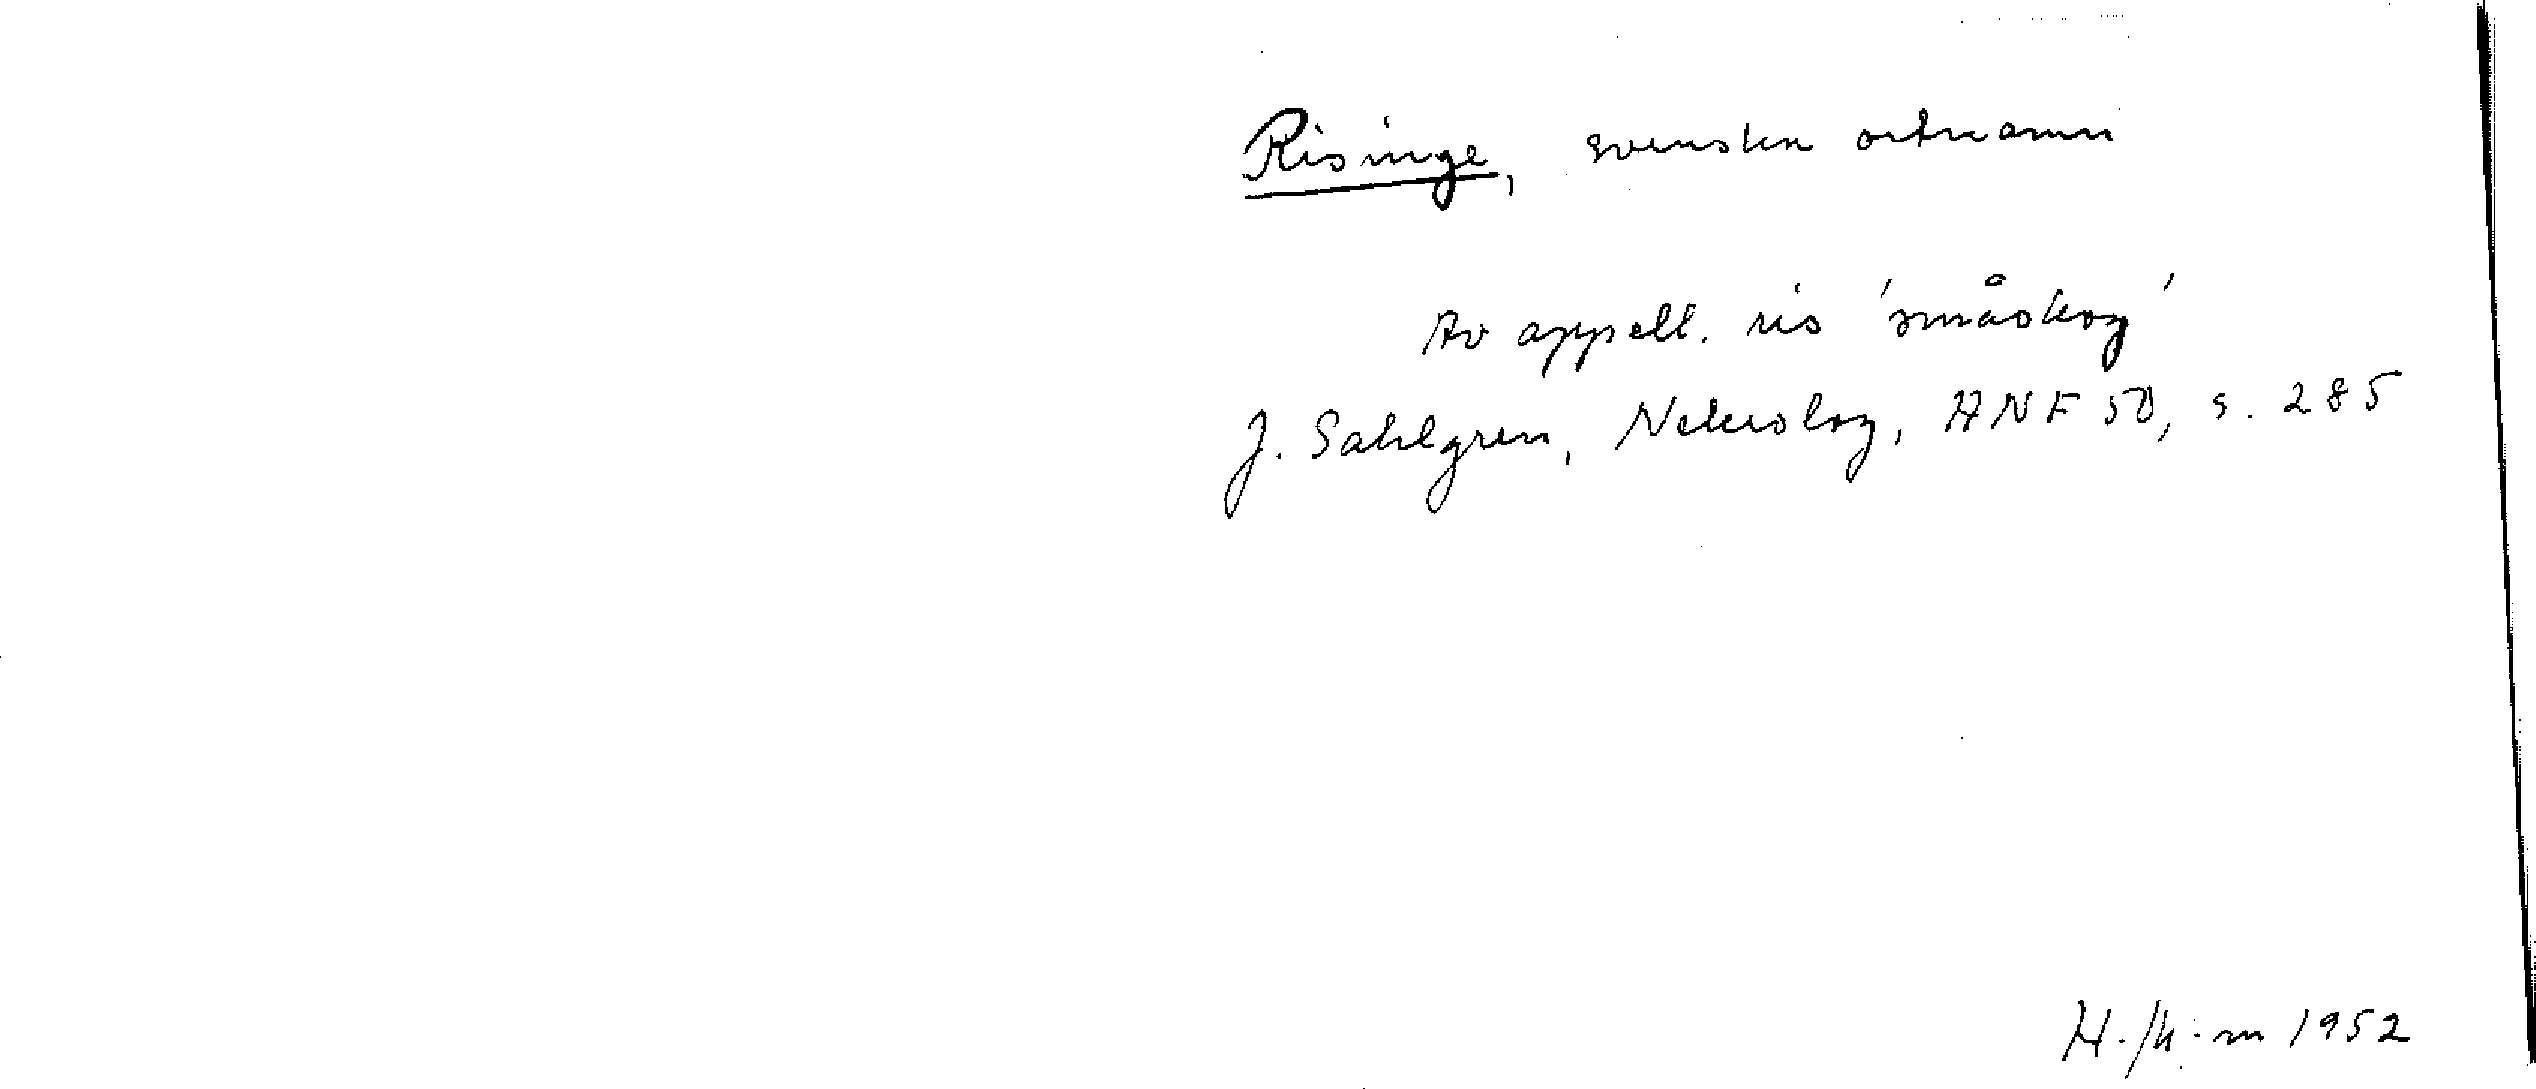 Risinge, svenska ortnamn
Av appell. ris 'småskog'
J. Sahlgren, Nekrolog, ANF 50, s. 285
1952